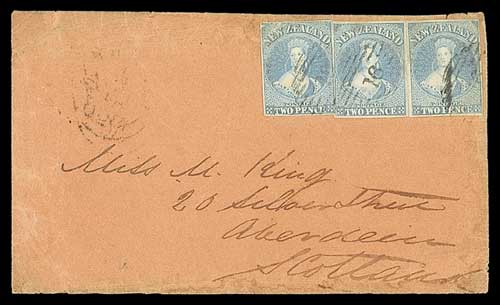 NEW ZEALAND NEW ZEALAND NEW ZEALAND
POSTAGE POSTAGE POSTAGE
TWO PENCE TWO PENCE TWO PENCE
18
Miss M. King
20 Silver Street
Aberdeen
Scotland